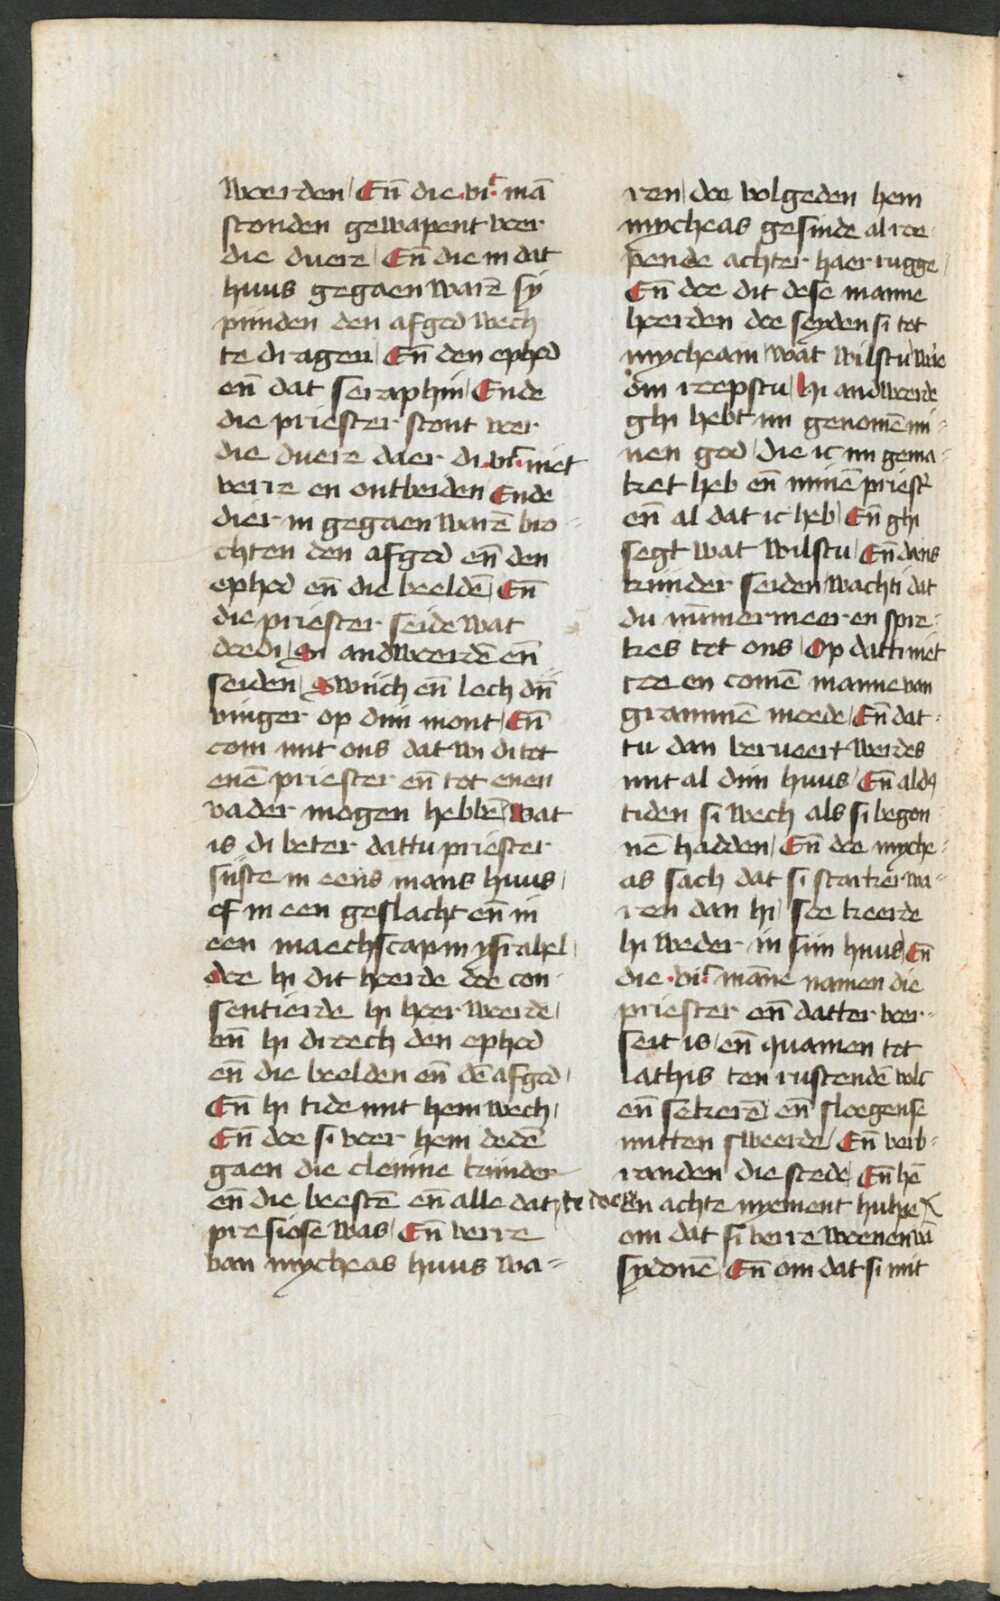 woerden / En̄ die .vi.c mā
stonden gewapent voer
die duere / En̄ die in dat
huus gegaen warē sy
pijnden den afgod wech
te dragen / En̄ den ephod
en̄ dat seraphin / Ende
die priester stont voer
die duere daer di .vi.c niet
verre en ontbeiden Ende
dier in gegaen warē bro=
chten den afgod en̄ den
ephod en̄ die beeldē / En̄
die priester seide wat
doedi / Si andwoerdē en̄
seiden / Swijch en̄ lech dijn̄
vinger op dijn mont / En̄
com mit ons dat wi di tot
enē priester en̄ tot enen
vader mogen hebbē / Wat
is di beter dattu priester
sijste in eens mans huus /
of in een geslacht en̄ in
een maechscap in ysrahel /
doe hi dit hoerde doe con
sentierde hi hoer woerde /
En̄ hi droech den ephod
en̄ die beelden en̄ dē afgod /
En̄ hi tide mit hem wech /
En̄ doe si voer hem dedē
gaen die cleijne kijnder
en̄ die beestē en̄ alle dat /
presiose was / En̄ verre
van mycheas huus wa=
ren / doe volgeden hem
mycheas gesinde al roe
pende achter haer rugge /
En̄ doe dit dese manne
hoerden doe seyden si tot
mycheam wat wilstu
om roepstu / hi andwoerde
ghi hebt mi genomē mi=
nen god / die ic mi gema=
ket heb en̄ minē priest'
en̄ al dat ic heb / En̄ ghi
segt wat wilstu / En̄ dans
kijnder seiden / wacht i dat
du nūmermeer en spre=
kes tot ons / Op datti niet
toe en comē manne van
grammē moede / En̄ dat=
tu dan beruert werdes
mit al dijn huus / En̄ aldꝰ
tiden si wech als si begon
nē hadden / En̄ doe myche=
as sach dat si starker wa=
ren dan hi / soe keerde
hi weder in sijn huus / En̄
die .vi.c māne namen die
priester en̄ datter voer=
seit is / en̄ quamen tot
lathis ten rustendē volc
en̄ sekerē / en̄ sloegense
mitten sweerde / En̄ verb=
randen die stede / En̄ hē
en achte nyement hulpe
om dat si verre woenen vā
sydonē / En̄ om dat si mit